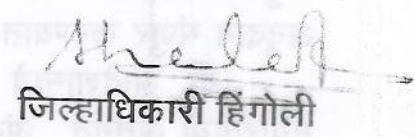 जिल्हाधिकारी हिंगोली